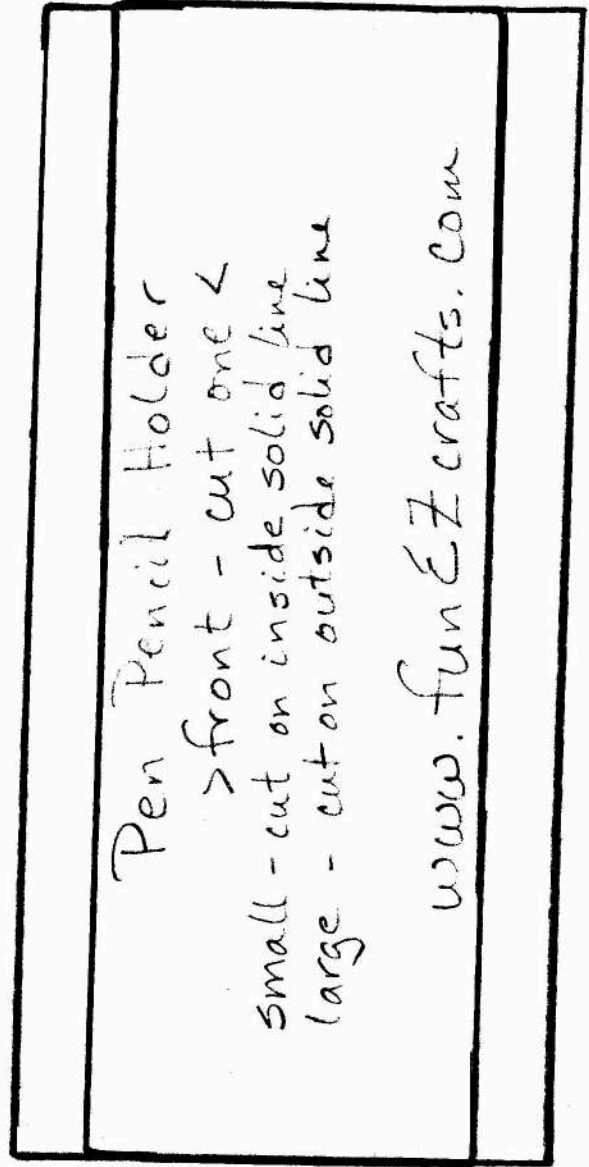 Pen Pencil Holder
>front - cut one <
small - cut on inside solid line
large - cut on outside solid line
www.funEZcrafts.com